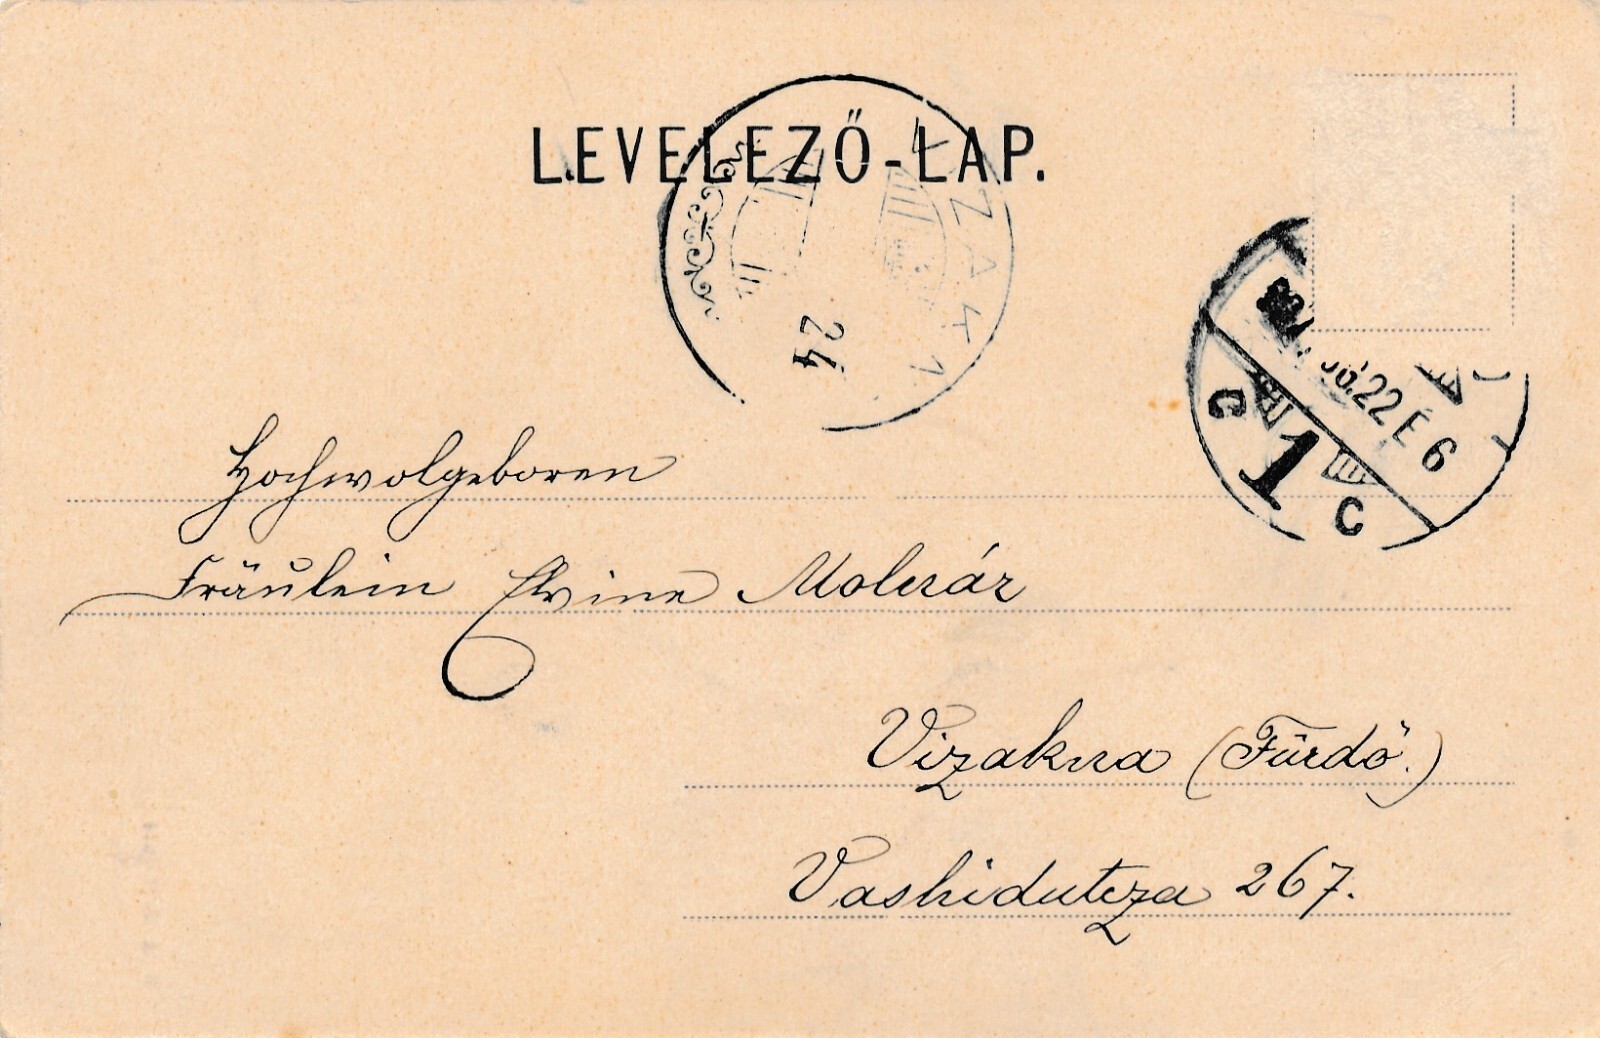 LEVELEZŐ-LAP.
24
22 E 6
C 1 C
Hochwolgeboren
Fräulein Elvine Molnár
Vizakna (Fürdő.)
Vashidutcza 267.